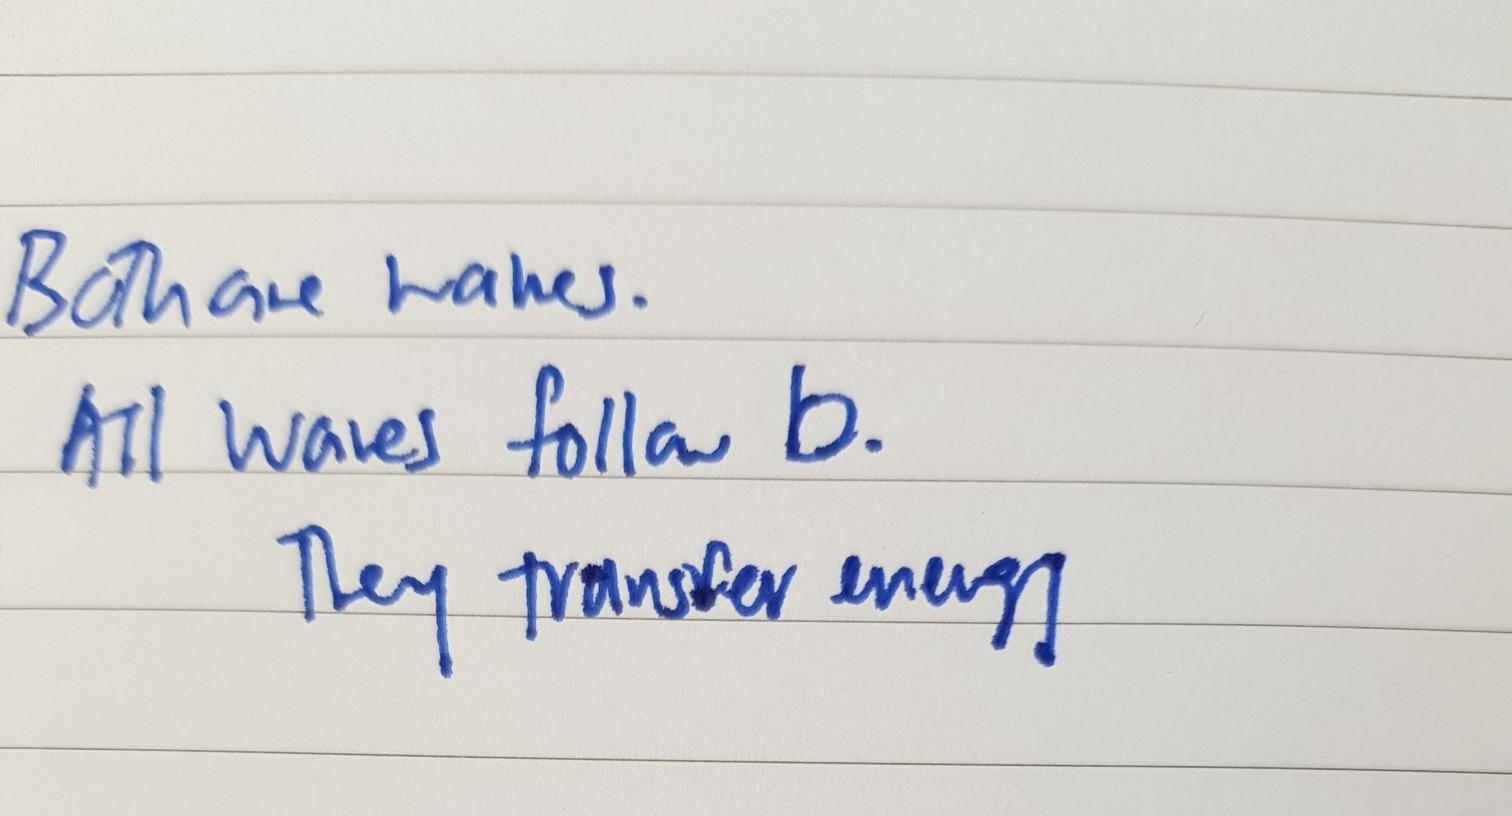 Both are waves.
All waves follow b.
They transfer energy